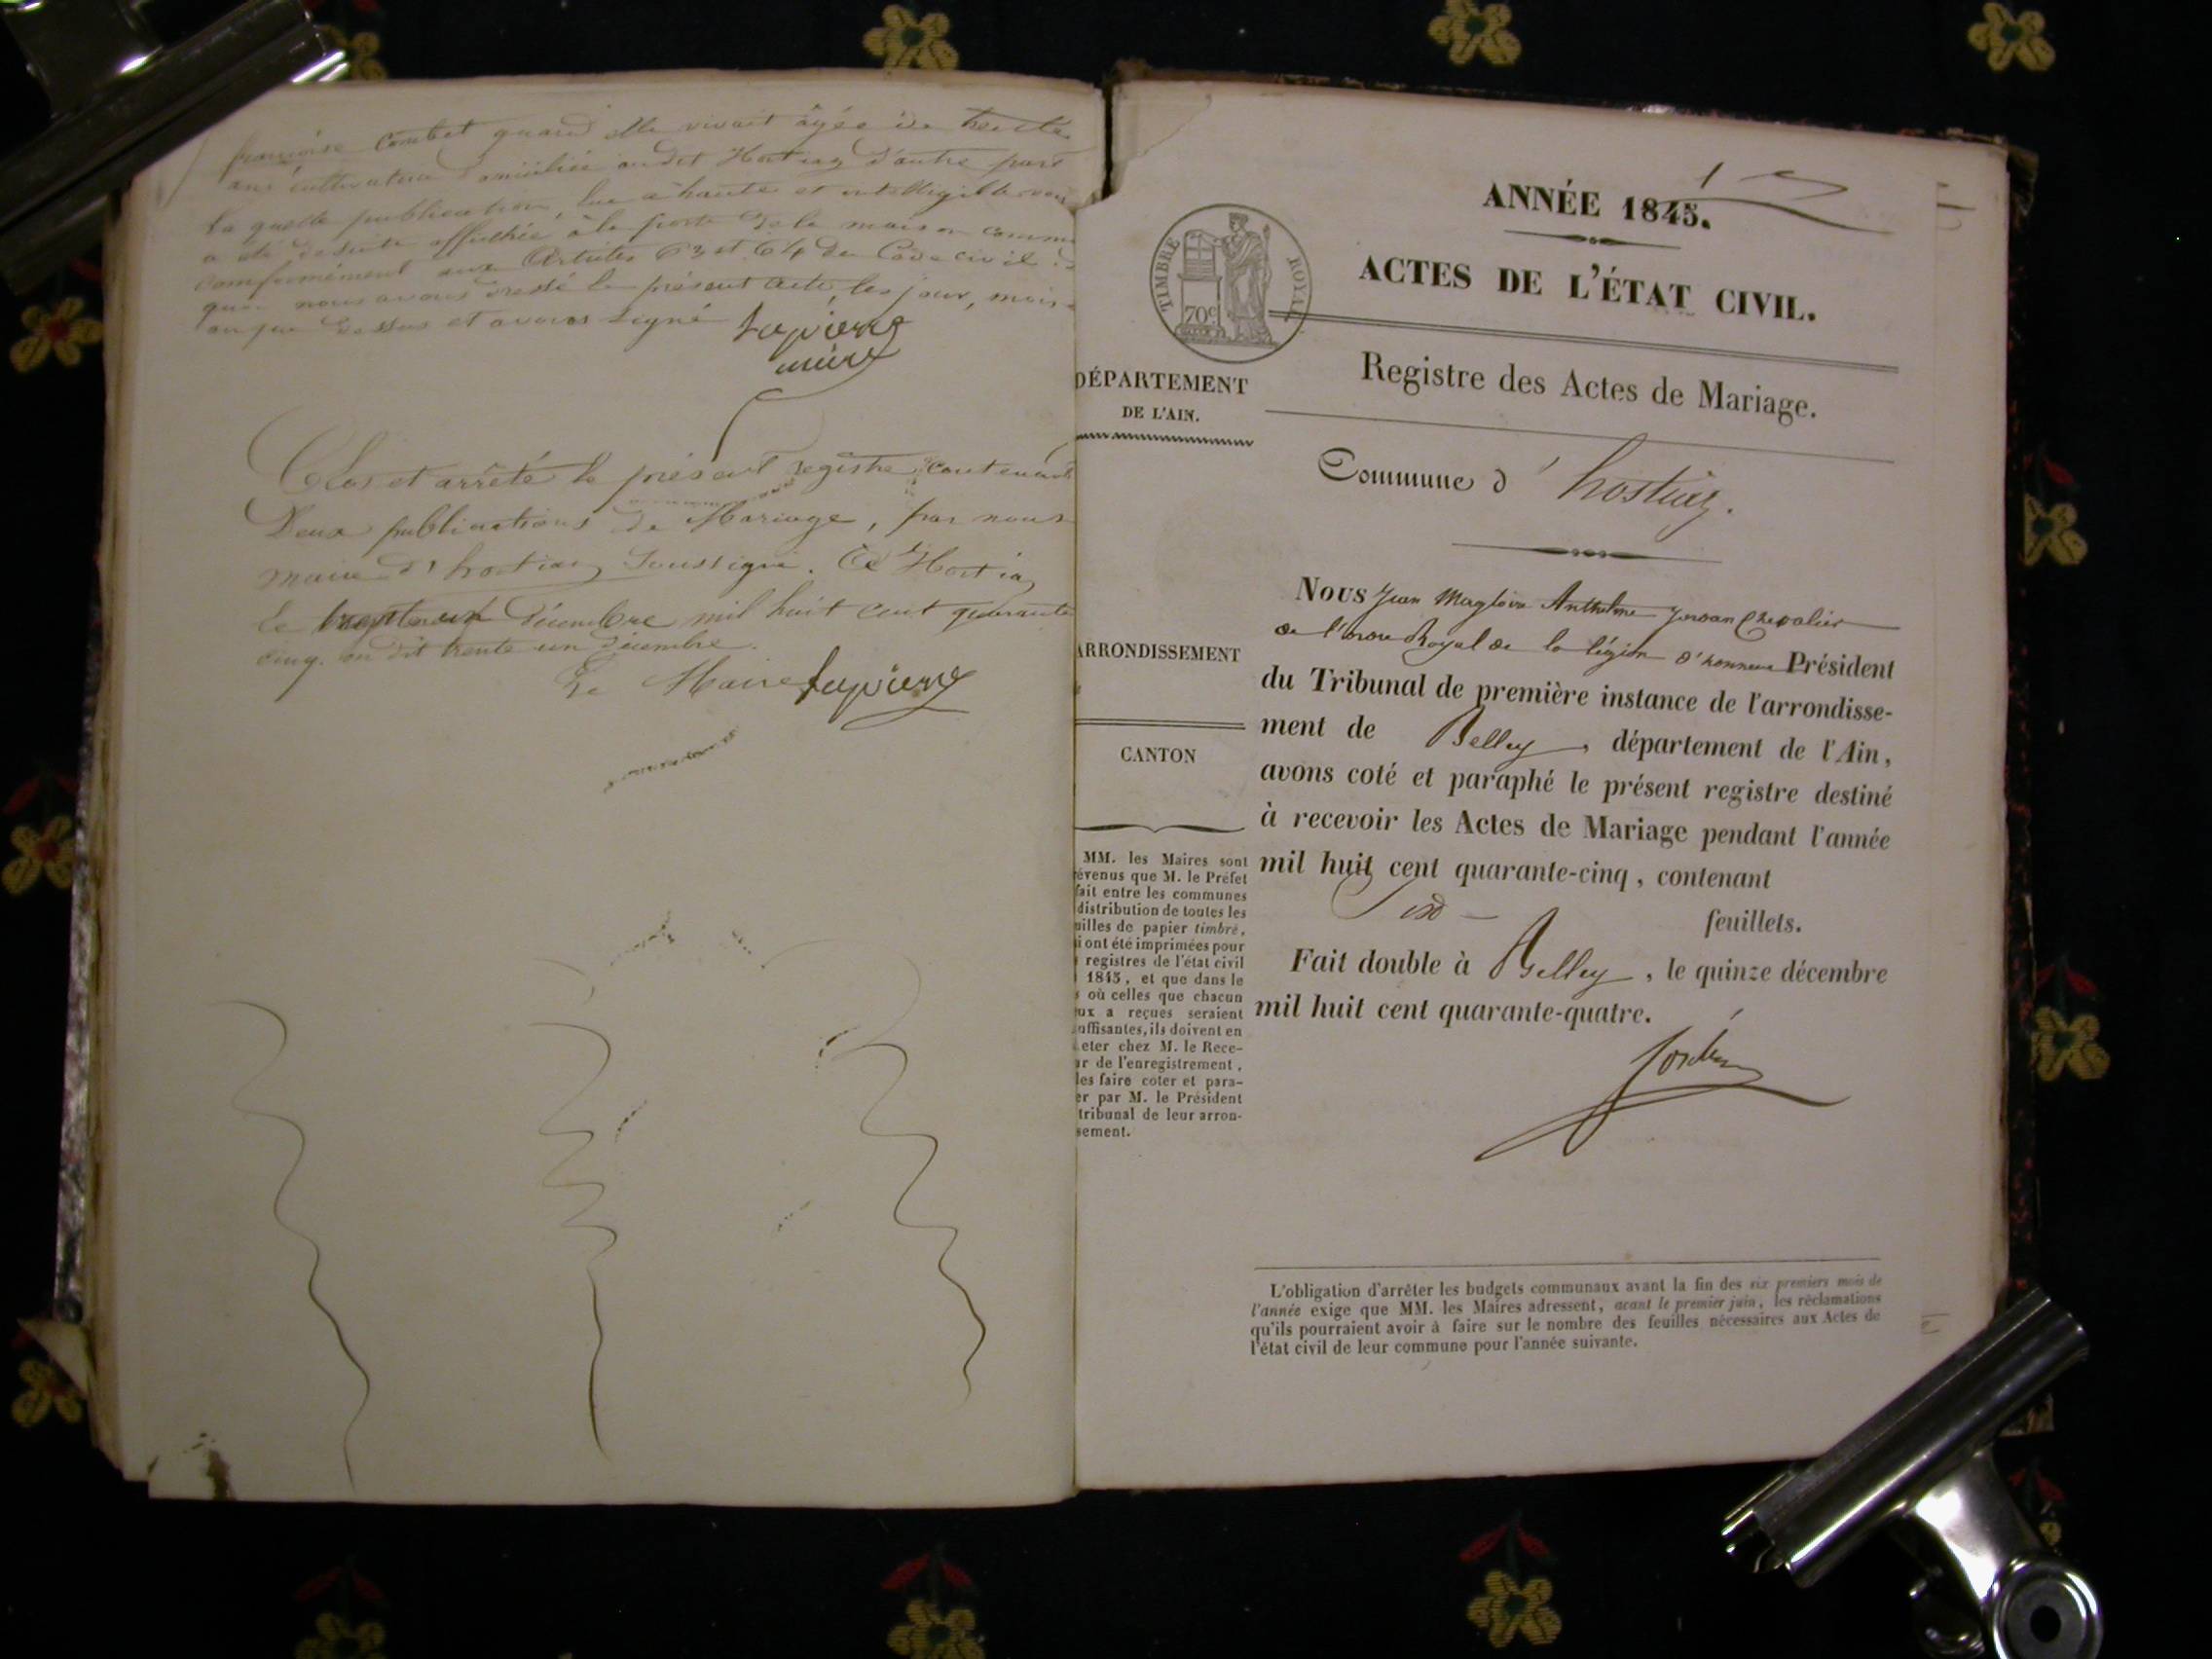 françoise Combet quand elle vivait âgée de trente
ans cultivatrice domiciliée audit Hostiaz d'autre part
la quelle publication, lue à haute et intelligible voix
a été de suite affichée à la porte de la maison commune
conformément aux Articles 63 et 64 du Code civil. de
quoi nous avons dressé le présent acte, les jour, mois
an que dessus et avons signé
maire
Clos et arrêté le présent registre contenant
Deux publications de Mariage, par nous
maire d'hostiaz Soussigné. à Hostiaz
Le décembre mil huit cent quarante
cinq. on dit trente un décembre.
Le Maire
1
ANNÉE 1845.
ACTES DE L'ÉTAT CIVIL.
TIMBRE ROYAL
70c
Registre des Actes de Mariage.
DÉPARTEMENT
DE L'AIN.
Commune d' hostiaz.
ARRONDISSEMENT
CANTON
MM. les Maires sont
évenus que M. le Préfet
fait entre les communes
distribution de toutes les
uilles de papier timbré,
i ont été imprimées pour
registres de l'état civil
1845, et que dans le
s où celles que chacun
ux a reçues seraient
uffisantes, ils doivent en
eter chez M. le Rece-
ur de l'enregistrement,
les faire coter et para-
er par M. le Président
tribunal de leur arron-
sement.
Nous Jean Magloire Anthelme Jordan Chevalier
de l'ordre Royal de la légion d'honneur Président
du Tribunal de première instance de l'arrondisse-
ment de Belley, département de l'Ain,
avons coté et paraphé le présent registre destiné
à recevoir les Actes de Mariage pendant l'année
mil huit cent quarante-cinq, contenant
feuillets.
Fait double à Belley, le quinze décembre
mil huit cent quarante-quatre.
Jordan
L'obligation d'arrêter les budgets communaux avant la fin des six premiers mois de
l'année exige que MM. les Maires adressent, avant le premier juin, les réclamations
qu'ils pourraient avoir à faire sur le nombre des feuilles nécessaires aux Actes de
l'état civil de leur commune pour l'année suivante.